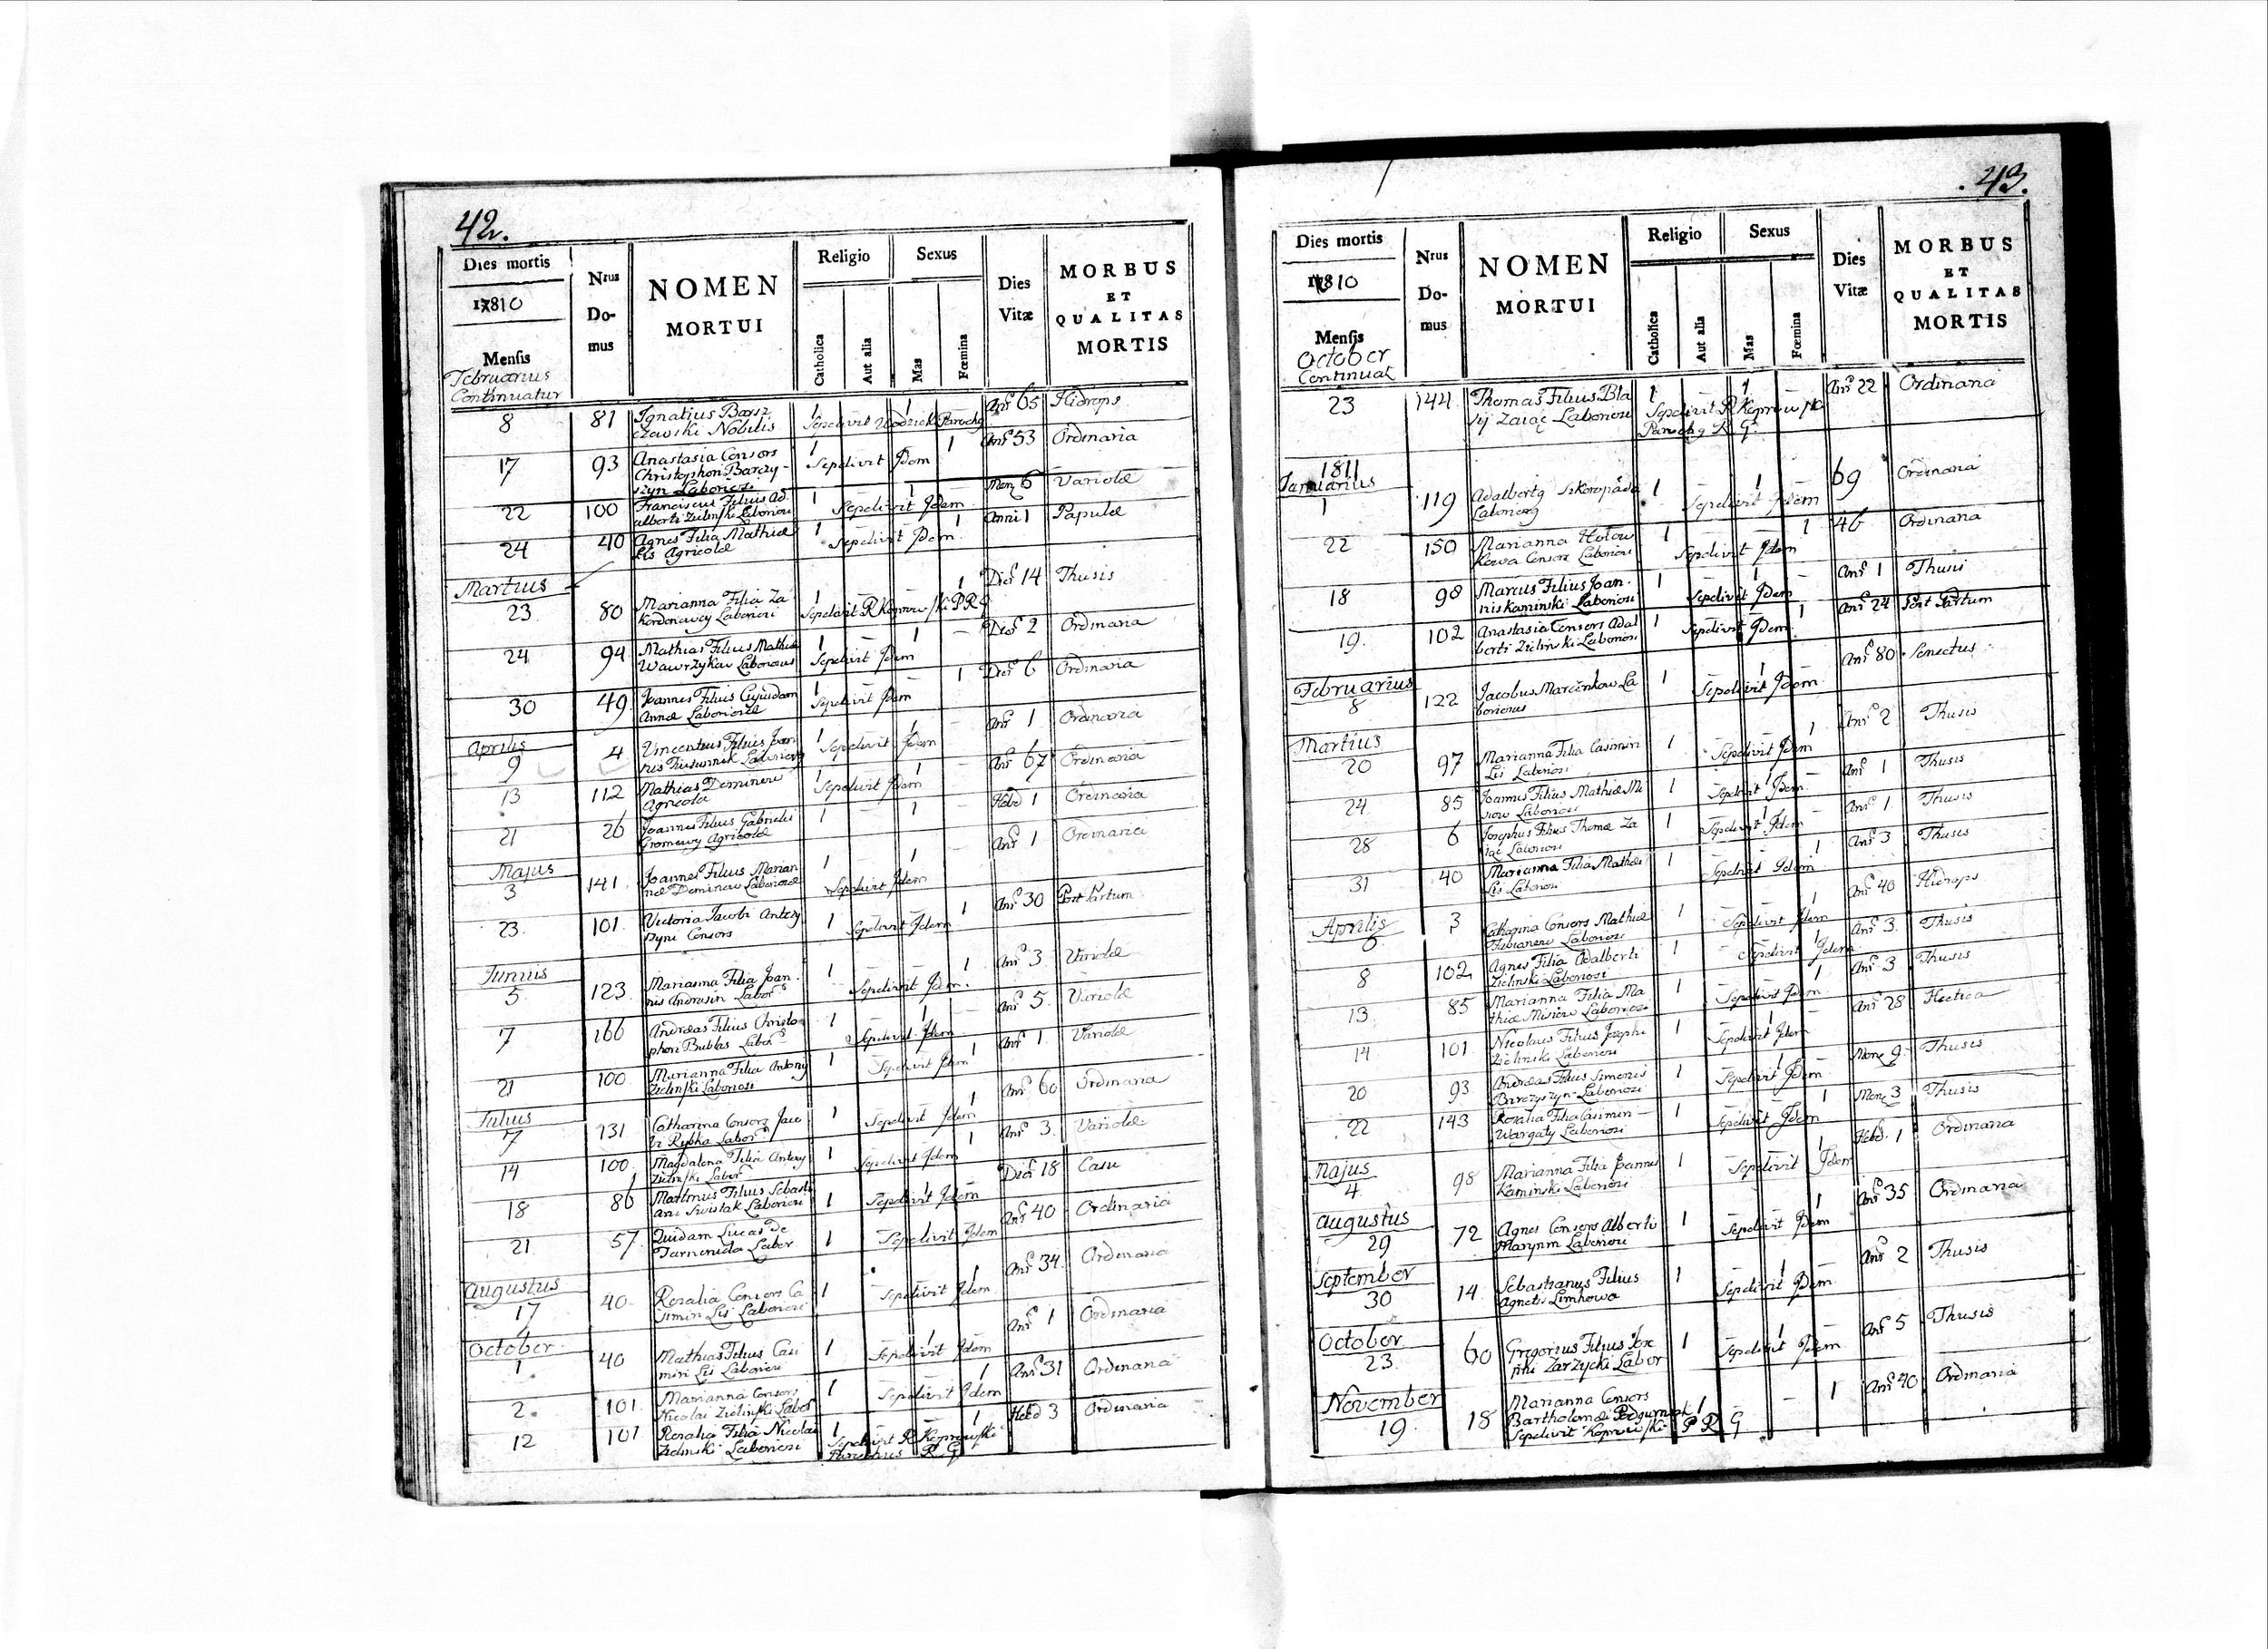 42.
Dies mortis
1810
Mensis
Februarius
Continuatur
Nrus
Do-
mus
NOMEN
MORTUI
Religio
Catholica
Aut alia
Sexus
Mas
Fœmina
Dies
Vitæ
MORBUS
ET
QUALITAS
MORTIS
8 81 Ignatius Barsz 1 1 Añs 65 Hidrops
czewski Nobilis Sepelivit Wodzicki Parochg
17 93 Anastasia Consors 1 1 Añs 53 Ordinaria
Christophori Barczy- Sepelivit Idem
szyn Laborios.
22 100 Franciscus Filius Ad 1 1 Mens 6 Variolæ
alberti Zielinski Laboriosi Sepelivit Idem
24 40 Agnes Filia Mathiæ 1 1 Anni 1 Papulæ
Lis Agricolæ Sepelivit Idem
Martius
23 80 Marianna Filia Za 1 1 Dies 14 Thusis
kordonowy Laboriosi Sepelivit R Koprowski P R G
24 94 Mathias Filius Mathiæ 1 1 – Dies 2 Ordinaria
Wawrzykow Laboriosus Sepelivit Idem
30 49 Joannes Filius Cujusdam 1 – 1 Dies 6 Ordinaria
Annæ Laboriosæ Sepelivit Idem
Aprilis
9 4 Vincentius Filius Joan 1 1 – Añs 1 Ordinaria
Sepelivit Idem
13 112 Mathias Dominow 1 1 Añs 67 Ordinaria
Agricola Sepelivit Idem
21 26 Joannes Filius Gabrielis 1 1 – Hebd 1 Ordinaria
Gromowy Agricolæ
Majus
3 141 Joannes Filius Marian 1 1 – Añs 1 Ordinaria
næ Dominow Laboriosæ Sepelivit Idem
23. 101. Victoria Jacobi Antczy 1 1 Añs 30 Post Partum
Consors Sepelivit Idem
Junius
5 123 Marianna Filia Joan- 1 – 1 Añs 3 Variolæ
nis Andrusin Labors Sepelivit Idem.
7 166 Andreas Filius Christo 1 1 – Añs 5 Variolæ
phori Bublas Labors Sepelivit Idem
21 100 Marianna Filia Antony 1 1 Añs 1 Variolæ
Zielinski Laboriosi Sepelivit Idem
Julius
7 131 Catharina Consors Jaco 1 1 Añs 60 Ordinaria
bi Rybka Labors Sepelivit Idem
14 100 Magdalena Filia Antony 1 1 Añs 3. Variolæ
Zielinski Labor Sepelivit Idem
18 86 Martinus Filius Sebasti 1 1 Dies 18 Casu
ani Swistak Laboriosi Sepelivit Idem
21 57 Quidam Lucas de 1 Añs 40 Ordinaria
Labor Sepelivit Idem
Augustus
17 40 Rosalia Consors Ca 1 1 Añs 34 Ordinaria
simiri Lis Laboriosi Sepelivit Idem
October
1 40 Mathias Filius Casi 1 1 Añs 1 Ordinaria
miri Lis Laboriosi Sepelivit Idem
2. 101. Marianna Consors 1 1 Añs 31 Ordinaria
Nicolai Zielinski Labor Sepelivit Idem
12 101 Rosalia Filia Nicolai 1 1 Hebd 3 Ordinaria
Zielinski Laboriosi Sepelivit R Koprowski
Parochus R G
. 43.
Dies mortis
1810
Mensis
October
Continuat
Nrus
Do-
mus
NOMEN
MORTUI
Religio
Catholica
Aut alia
Sexus
Mas
Fœmina
Dies
Vitæ
MORBUS
ET
QUALITAS
MORTIS
23 144 Thomas Filius Bla 1 – 1 – Añs 22 Ordinaria
sij Zaiąc Laboriosi Sepelivit R Koprowski
Parochg R G
1811
Januarius
1 119 Adalbertg Szkoropada 1 1 – 69 Ordinaria
Laboriosg Sepelivit Idem
22 150 Marianna Hołow 1 1 46 Ordinaria
kowa Consors Laboriosi Sepelivit Idem
18 98 Marcus Filius Joan- 1 1 – Añs 1 Thusis
nis Kaminski Laboriosi Sepelivit Idem
19. 102 Anastasia Consors Adal 1 1 Añs 24 Post Partum
berti Zielinski Laboriosi Sepelivit Idem
Februarius
8 122 Jacobus Marcinkow La 1 1 Añs 80 Senectus
boriosus Sepelivit Idem
Martius
20 97 Marianna Filia Casimiri 1 1 Añs 2 Thusis
Lis Laboriosi Sepelivit Idem
24 85 Joannes Filius Mathiæ Mi 1 1 Añs 1 Thusis
siow Laboriosi Sepelivit Idem
28 6 Josephus Filius Thomæ Za 1 1 Añs 1. Thusis
iąc Laboriosi Sepelivit Idem
31 40 Marianna Filia Mathiæ 1 1 Añs 3 Thusis
Lis Laboriosi Sepelivit Idem
Aprilis
6 3 Catharina Consors Mathiæ 1 1 Añs 40 Hidrops
Fabianow Laboriosi Sepelivit Idem
8 102 Agnes Filia Adalberti 1 1 Añs 3 Thusis
Zielinski Laboriosi Sepelivit Idem
13 85 Marianna Filia Ma 1 1 Añs 3 Thusis
thiæ Misiow Laboriosi Sepelivit Idem
14 101 Nicolaus Filius Josephi 1 1 Añs 28 Hectica
Zielinski Laboriosi Sepelivit Idem
20 93 Andreas Filius Simonis 1 1 – Mens 9 Thusis
Barczyszyn Laboriosi Sepelivit Idem
22 143 Rosalia Filia Casimiri 1 1 Mens 3 Thusis
Wargaty Laboriosi Sepelivit Idem
Majus
4 98 Marianna Filia Joannis 1 1 Hebd. 1 Ordinaria
Kaminski Laboriosi Sepelivit Idem
Augustus
29 72 Agnes Consors Alberti 1 1 Añs 35 Ordinaria
Marynin Laboriosi Sepelivit Idem
September
30 14 Sebastianus Filius 1 1 Añs 2 Thusis
Agnetis Limhowa Sepelivit Idem
October
23 60 Gregorius Filius Jose 1 1 Añs 5 Thusis
phi Zarzycki Labor Sepelivit Idem
November
19. 18 Marianna Consors 1 – 1 Añs 40 Ordinaria
Bartholomæi
Sepelivit Koprowski P R G